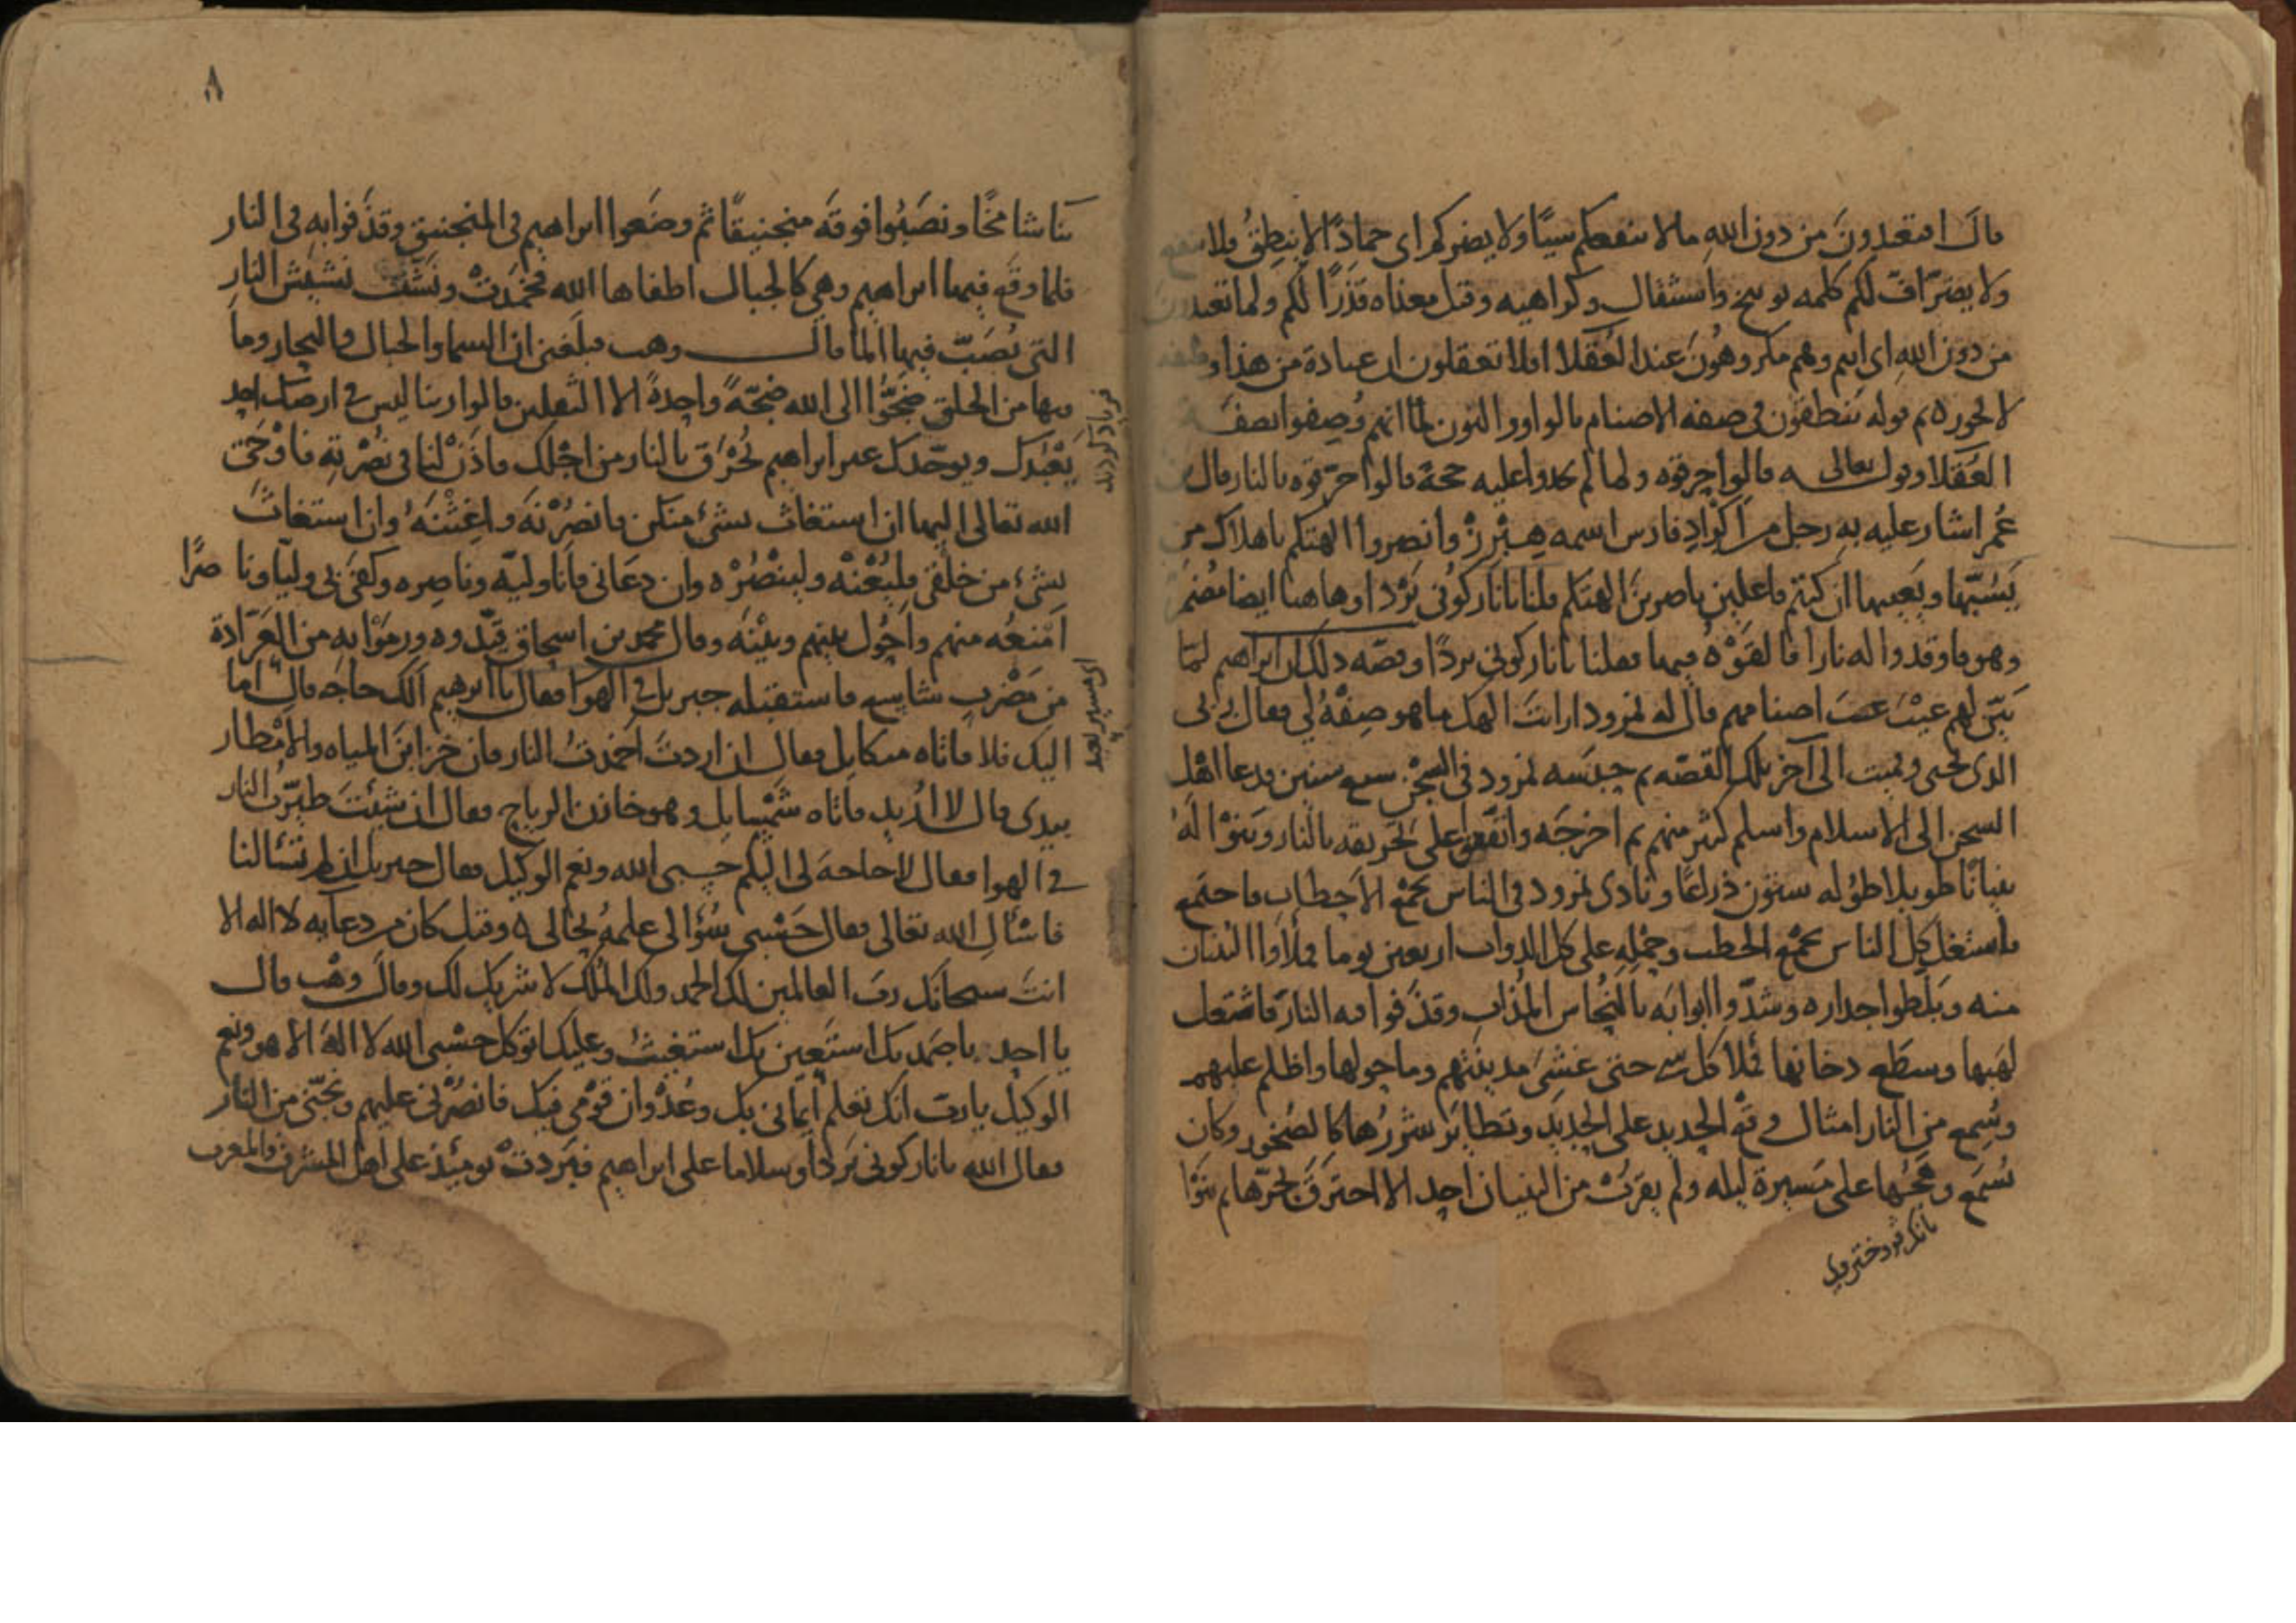 قال افتعبدون من دون اللهِ ما لا ينفعكم شيًا ولا يضركم اى جمادًا لا ينطِقُ فلا ينفع
ولا يضرّ افّ لكم كلمه توبيخ واستثقال وكراهيه وقيل معناه قذرًا لكم ولما تعبدون
من دون اللهِ اى انتم وهم مكروهُونَ عند العُقلا افلا تعقلون ان عبادة من هذا وصفه
لا تجوز ثم قوله ينطقون فى صفه الاصنام بالواو والنون لما انهم وُصِفوا بصفه
العُقَلا وقوله تعالى قالوا حرقوه ولما لم يجدوا عليه حجةً قالوا حرّقوه بالنار قال ابن
عُمر اشار عليه بهِ رجل من اكرادِ فارس اسمه هيزرْ وانصروا الهتكم باهلاك من
يَسُبّها ويَعيبها ان كنتم فاعلين ناصرينَ الهتكم قلنا يا نار كُونى بَرْدًا وها هنا ايضا مُضمرٌ
وهو فاوقدوا له نارا فالقَوْهُ فيها فقلنا يا نار كونى بردًا وقصّه ذلك ان ابراهيم لمّا
بيّن لهم عيْبَ اصنامهم قال له نمرود ارايتَ الهك ما هو صِفْهُ لى فقال ربى
الذى يحيى ويميت الى آخر تلك القصّه ثم حبسَه نمرود فى السجْن سبع سنين فدعا اهْل
السجن الى الاسلام واسلم كثير منهم ثم اخرجَه واتّفقوا على تحريقه بالنار وبَنَوْا لهُ
بنيانًا طويلا طوُله ستون ذراعًا ونادى نمرود فى الناس بجمْع الاحطاب فاجتمع
فاشتغل كل الناس بجمْع الحطب وحمْلهِ على كل الدواب اربعين يوما فملأوا البنيان
منه وبَلّطوا جداره وشدّوا ابوابَه بالنُّحاس المُذاب وقذَفوا فيه النارَ فاشتعل
لهَبها وسطَع دخانها فملا كل شى حتى غشِىَ مدينتهم وما حولها واظلم عليهم
وسُمِع من النار امثال وقع الحديد على الحديد وتطايرَ شررُها كالصُخور وكان
يُسْمَع وهَجُها على مَسيرة ليله ولم يقرُبْ من البنيان احد الا احترقَ لحَرّها ثم بنَوْا
بناً شامخًا ونصَبُوا فوقَهَ منجنيقًا ثم وضَعوا ابراهيم فى المنجنيق وقذَفوا بهِ فى النار
فلما وقَع فيها ابراهيم وهى كالجبال اطفاها الله فخمدَتْ ونَشّت نشيش النارِ
التى يُصَبّ فيها الما قال وهب فبلغنى ان السما والجبال والبحار وما
فيها من الخلق ضجّوا الى الله ضجّةً واحدةً الا الثقلين قالوا ربنا ليس فى ارضك احد
يَعْبُدك ويوحّدك غير ابراهيم يُحْرَق بالنار من اجْلك فاذَن لنا فى نُصْرتِه فاوْحَى
الله تعالى اليها ان استغاث بشىء منكن فانصُرْنَه واغثْنَهُ وان استغاث
بشىء من خلقى فليُغْثْه ولينْصُرْه وان دعَانى فانا وليّه وناصِره وكفَى بى وليّا وناصرًا
اَمْنعُه منهم واحُول بينهم وبيْنَه وقال محمد بن اسحاق قيّدوه ورمَوْا به من العرّادة
من مَضْرب شاسع فاستقبله جبريل فى الهوا فقال يا ابرهيم الك حاجه قال امّا
اليك فلا فاتاه ميكايل فقال ان اردتَ اخمدْتُ النار فان خزاينَ المياه والامْطار
بيدى قال لا اُريد فاتاه شَمْسايل وهو خازن الرياح فقال ان شِئتَ طيّرتُ النار
فى الهوا فقال لا حاجة لى اليكم حَسبى الله ونعم الوكيل فقال جبريل ان لم تسْالنا
فاسْال الله تعالى فقال حَسْبى من سُؤالى علمهُ بحالى ه وقيل كان من دعايه لا اله الا
انتَ سبحانك ربّ العالمين لك الحمد ولك المُلك لا شريك لك وقال وهْب قال
يا احد يا صَمد بك استَعين بك استغيث وعليك اتوكل حسْبى الله لا اله الا هو ونعم
الوكيل يا ربّ انك تعلم ايمانى بك وعُدْوان قوْمى فيك فانصُرْنى عليهم ونجّنى من النار
فقال الله يا نار كونى بَردًا وسلاما على ابراهيم فبَردتْ يومئِذٍ على اهل المشرق والمغرب
٨
فرياد كردند
اى مسير بعيد